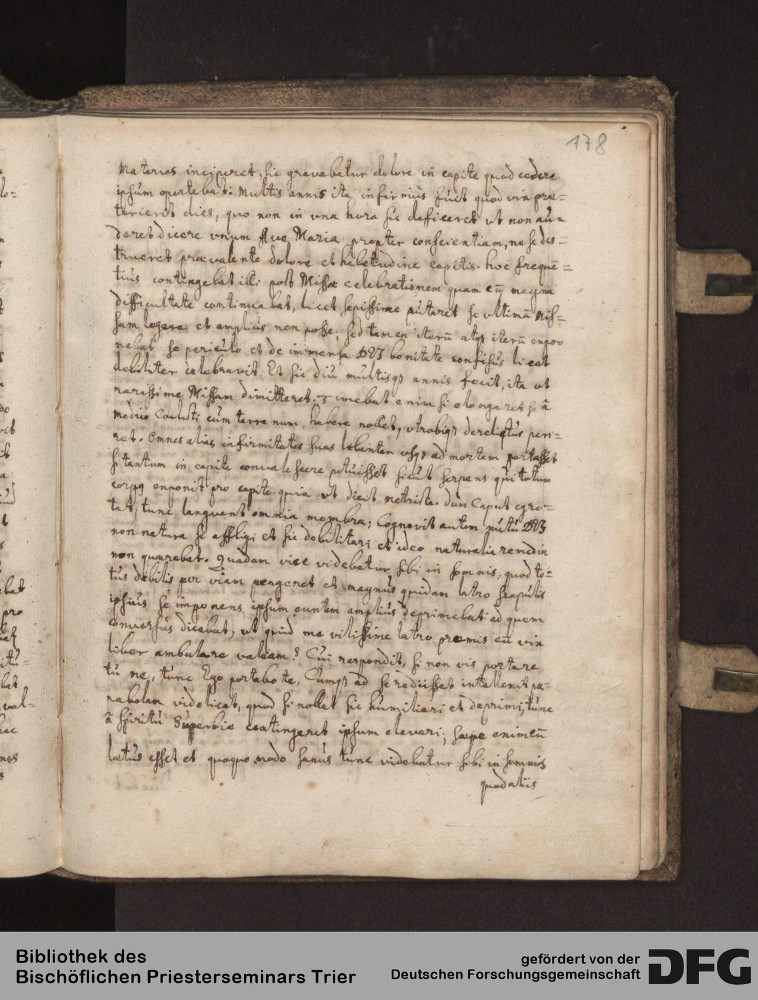 178
Materias inciperet, sic gravabatur dolore in capite quod cedere
ipsum oportebat. Multis annis ita infirmus fuit quod vix prae=
terierit dies, quo non in una hora sic deficeret ut non au=
deret dicere unum Ave Maria propter conscientiam, ne se des=
trueret praevalente dolore et hebetudine capitis. hoc frequē=
tius contingebat illi post Missae celebrationem quam cū magna
difficultate continuabat, licet sepissime putaret se ultimā Mis=
sam legere et amplius non posse, sed tamen iterū atqȝ iterū expo
nebat se periculo et de immensa DEI bonitate confisus licet
debiliter celebravit. Et sic diu multisqȝ annis fecit, ita ut
rarissime Missam dimitteret. Timebat enim si elongaret se â
medio Coelesti cum terrenum habere nollet, utrobiqȝ derelictus peri=
ret. Omnes alias infirmitates suas libenter usqȝ ad mortem portasset
si tantum in capite convalescere potuisset sicut serpens qui totum
corpȝ exponit pro capite quia ut dicit
dum Caput egro=
tat, tunc languent omnia membra; Cognovit autem nutu DEI
non natura se affligi et sic debilitari et ideo naturalia remedia
non quaerebat. Quadam vice videbatur sibi in somnis, quod to=
tus debilis per viam pergeret et magnus quidam latro scapulis
ipsius se imponens ipsum euntem amplius deprimebat: ad quem
conversus dicebat, ut quid me vilissime latro premis cū vix
liber ambulare valeam? Cui respondit, si non vis portare
tu me, tunc Ego portabo te, Cumqȝ ad se rediisset intellexit pa=
rabolam videlicet, quod si nollet sic humiliari et deprimi, tunc
â spiritu Superbiae contingeret ipsum elevari; saepe enim cū
laetus esset et quoquo modo sanus tunc videbatur sibi in somnis
quod aliis
Bibliothek des
Bischöflichen Priesterseminars Trier
gefördert von der
Deutschen Forschungsgemeinschaft
DFG